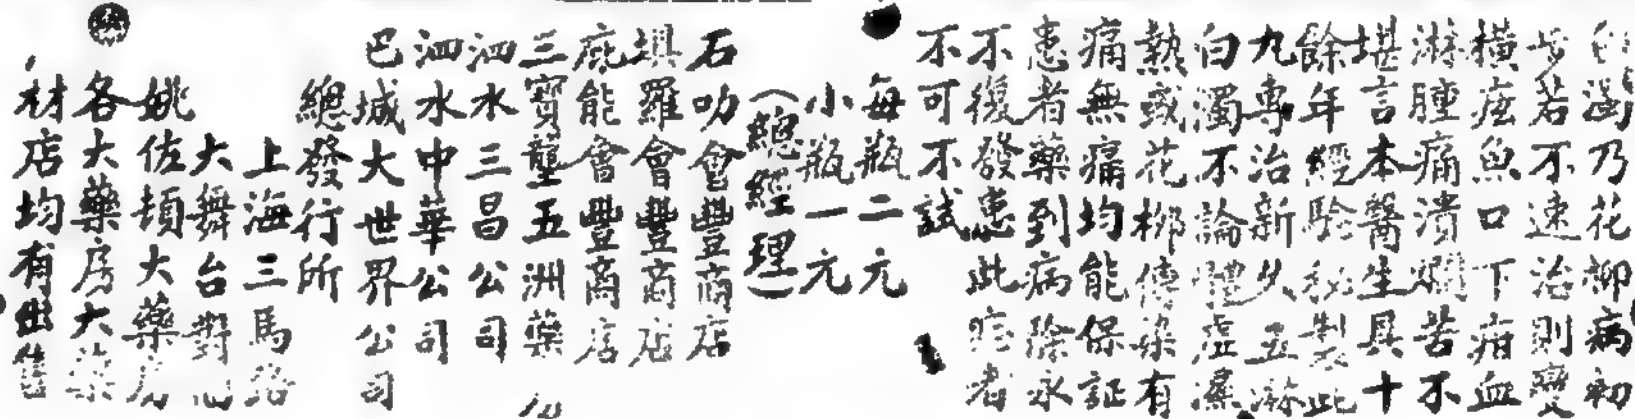 白濁乃花柳病初
步若不速治則變
橫痃魚口下疳血
淋腫痛潰爛苦不
堪言本醫生具十
餘年經驗秘製此
九專治新久五淋
白濁不論體虛濕
熱或花柳傳染有
痛無痛均能保証
患者藥到病除永
不復發患此症者
不可不試
每瓶二元
小瓶一元
(總經理)
石叻會豐商店
埧羅會豐商店
庇能會豐商店
三寶壟五洲藥
泗水三昌公司
泗水中華公司
巴城大世界公司
總發行所
上海三馬路
大舞台對面
姚佐頓大藥房
各大藥房大藥
材店均有出售